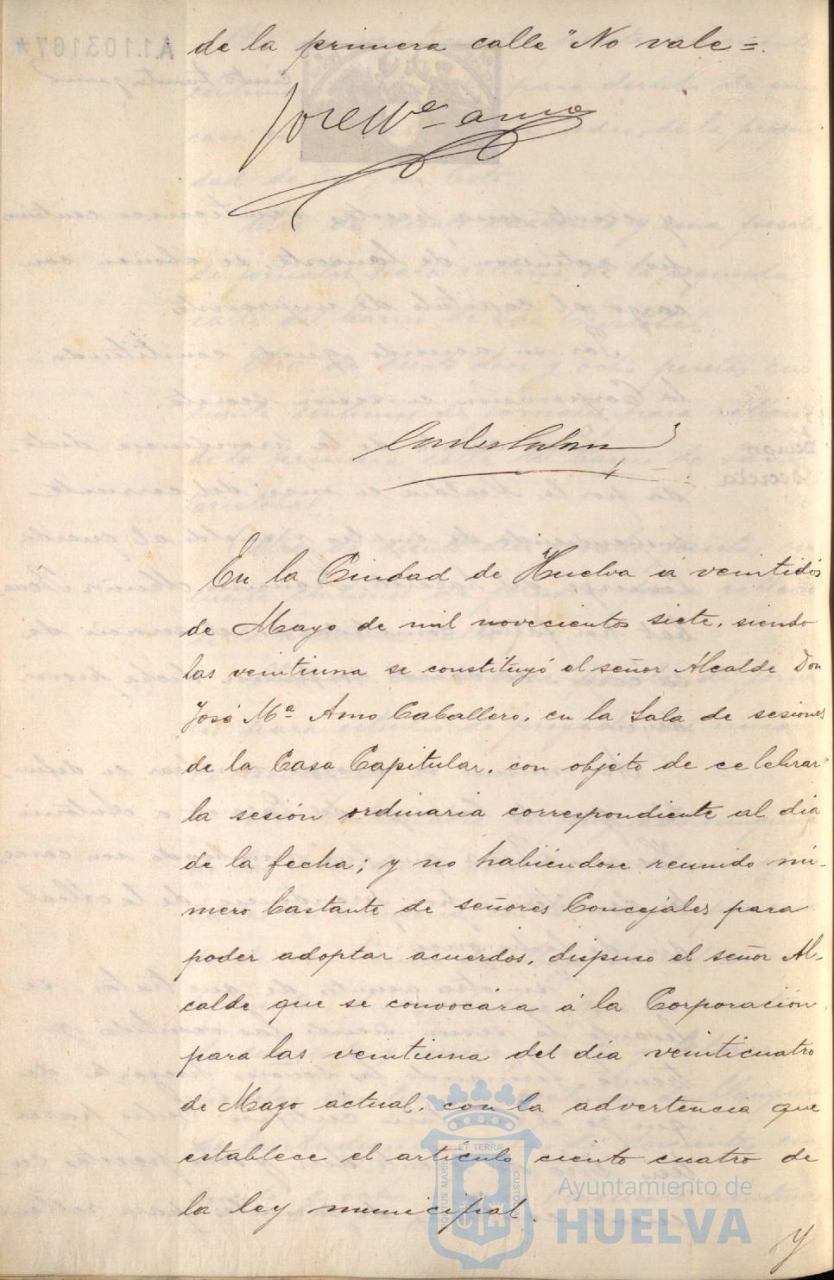 A1.103.167*
de la primera calle "No vale=.
José Mª Amo
En la Ciudad de Huelva á veintidos
de Mayo de mil novecientos siete, siendo
las veintiuna se constituyó el señor Alcalde Don
José Mª Amo Caballero, en la Sala de sesiones
de la Casa Capitular, con objeto de celebrar
la sesión ordinaria correspondiente al dia
de la fecha; y no habiéndose reunido nú-
mero bastante de señores Concejales para
poder adoptar acuerdos, dispuso el señor Al-
calde que se convocára á la Corporación
para las veintiuna del dia veinticuatro
de Mayo actual, con la advertencia que
establece el artículo ciento cuatro de
la ley municipal.
Y
Ayuntamiento de
HUELVA